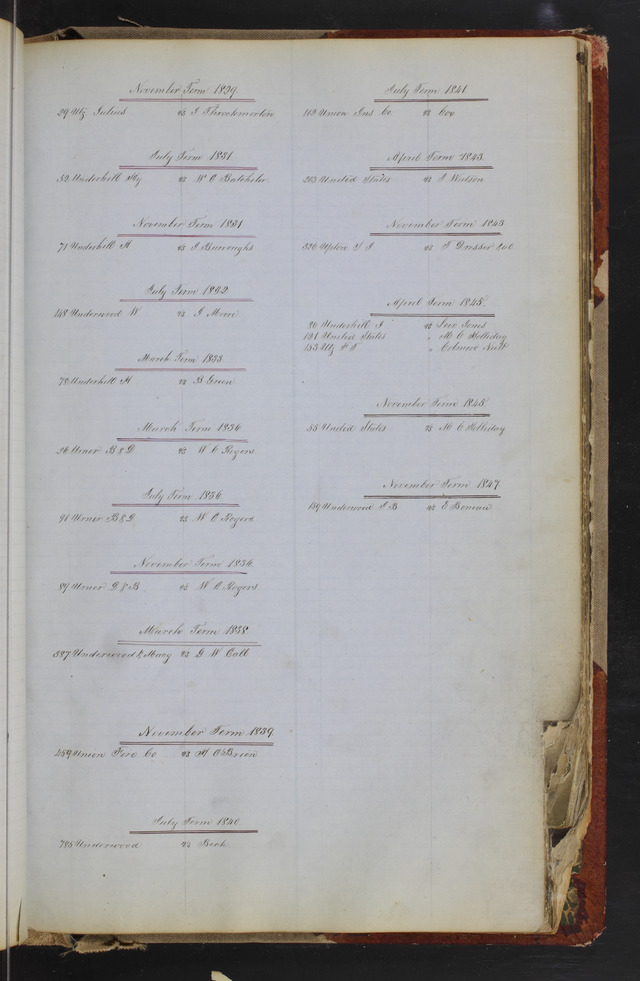 November Term 1829
29 Utz Julius vs J Throckmorton
July Term 1831
52 Underhill Hy vs W O Batchelor
November Term 1831
71 Underhill H vs J Burroughs
July Term 1832
148 Underwood W vs J Moore
March Term 1833
78 Underhill H vs B Green
March Term 1836
26 Urner B & D vs W C Rogers
July Term 1836
91 Urner B & D vs W C Rogers
November Term 1836
89 Urner D & B vs W C Rogers
March Term 1838
337 Underwood & Macy vs G W Call
November Term 1839
459 Union Fire Co vs H O Brien
July Term 1840
785 Underwood vs
July Term 1841
112 Union Ins Co vs Cox
April Term 1843
213 United States vs J Watson
November Term 1843
320 Upton vs S Dresser
April Term 1845
20 Underhill J vs Jones
121 United States " M C Holliday
153 Utz " Colmore
November Term 1845
55 United States vs M C Holliday
November Term 1847
189 Underwood J B vs E Boneau